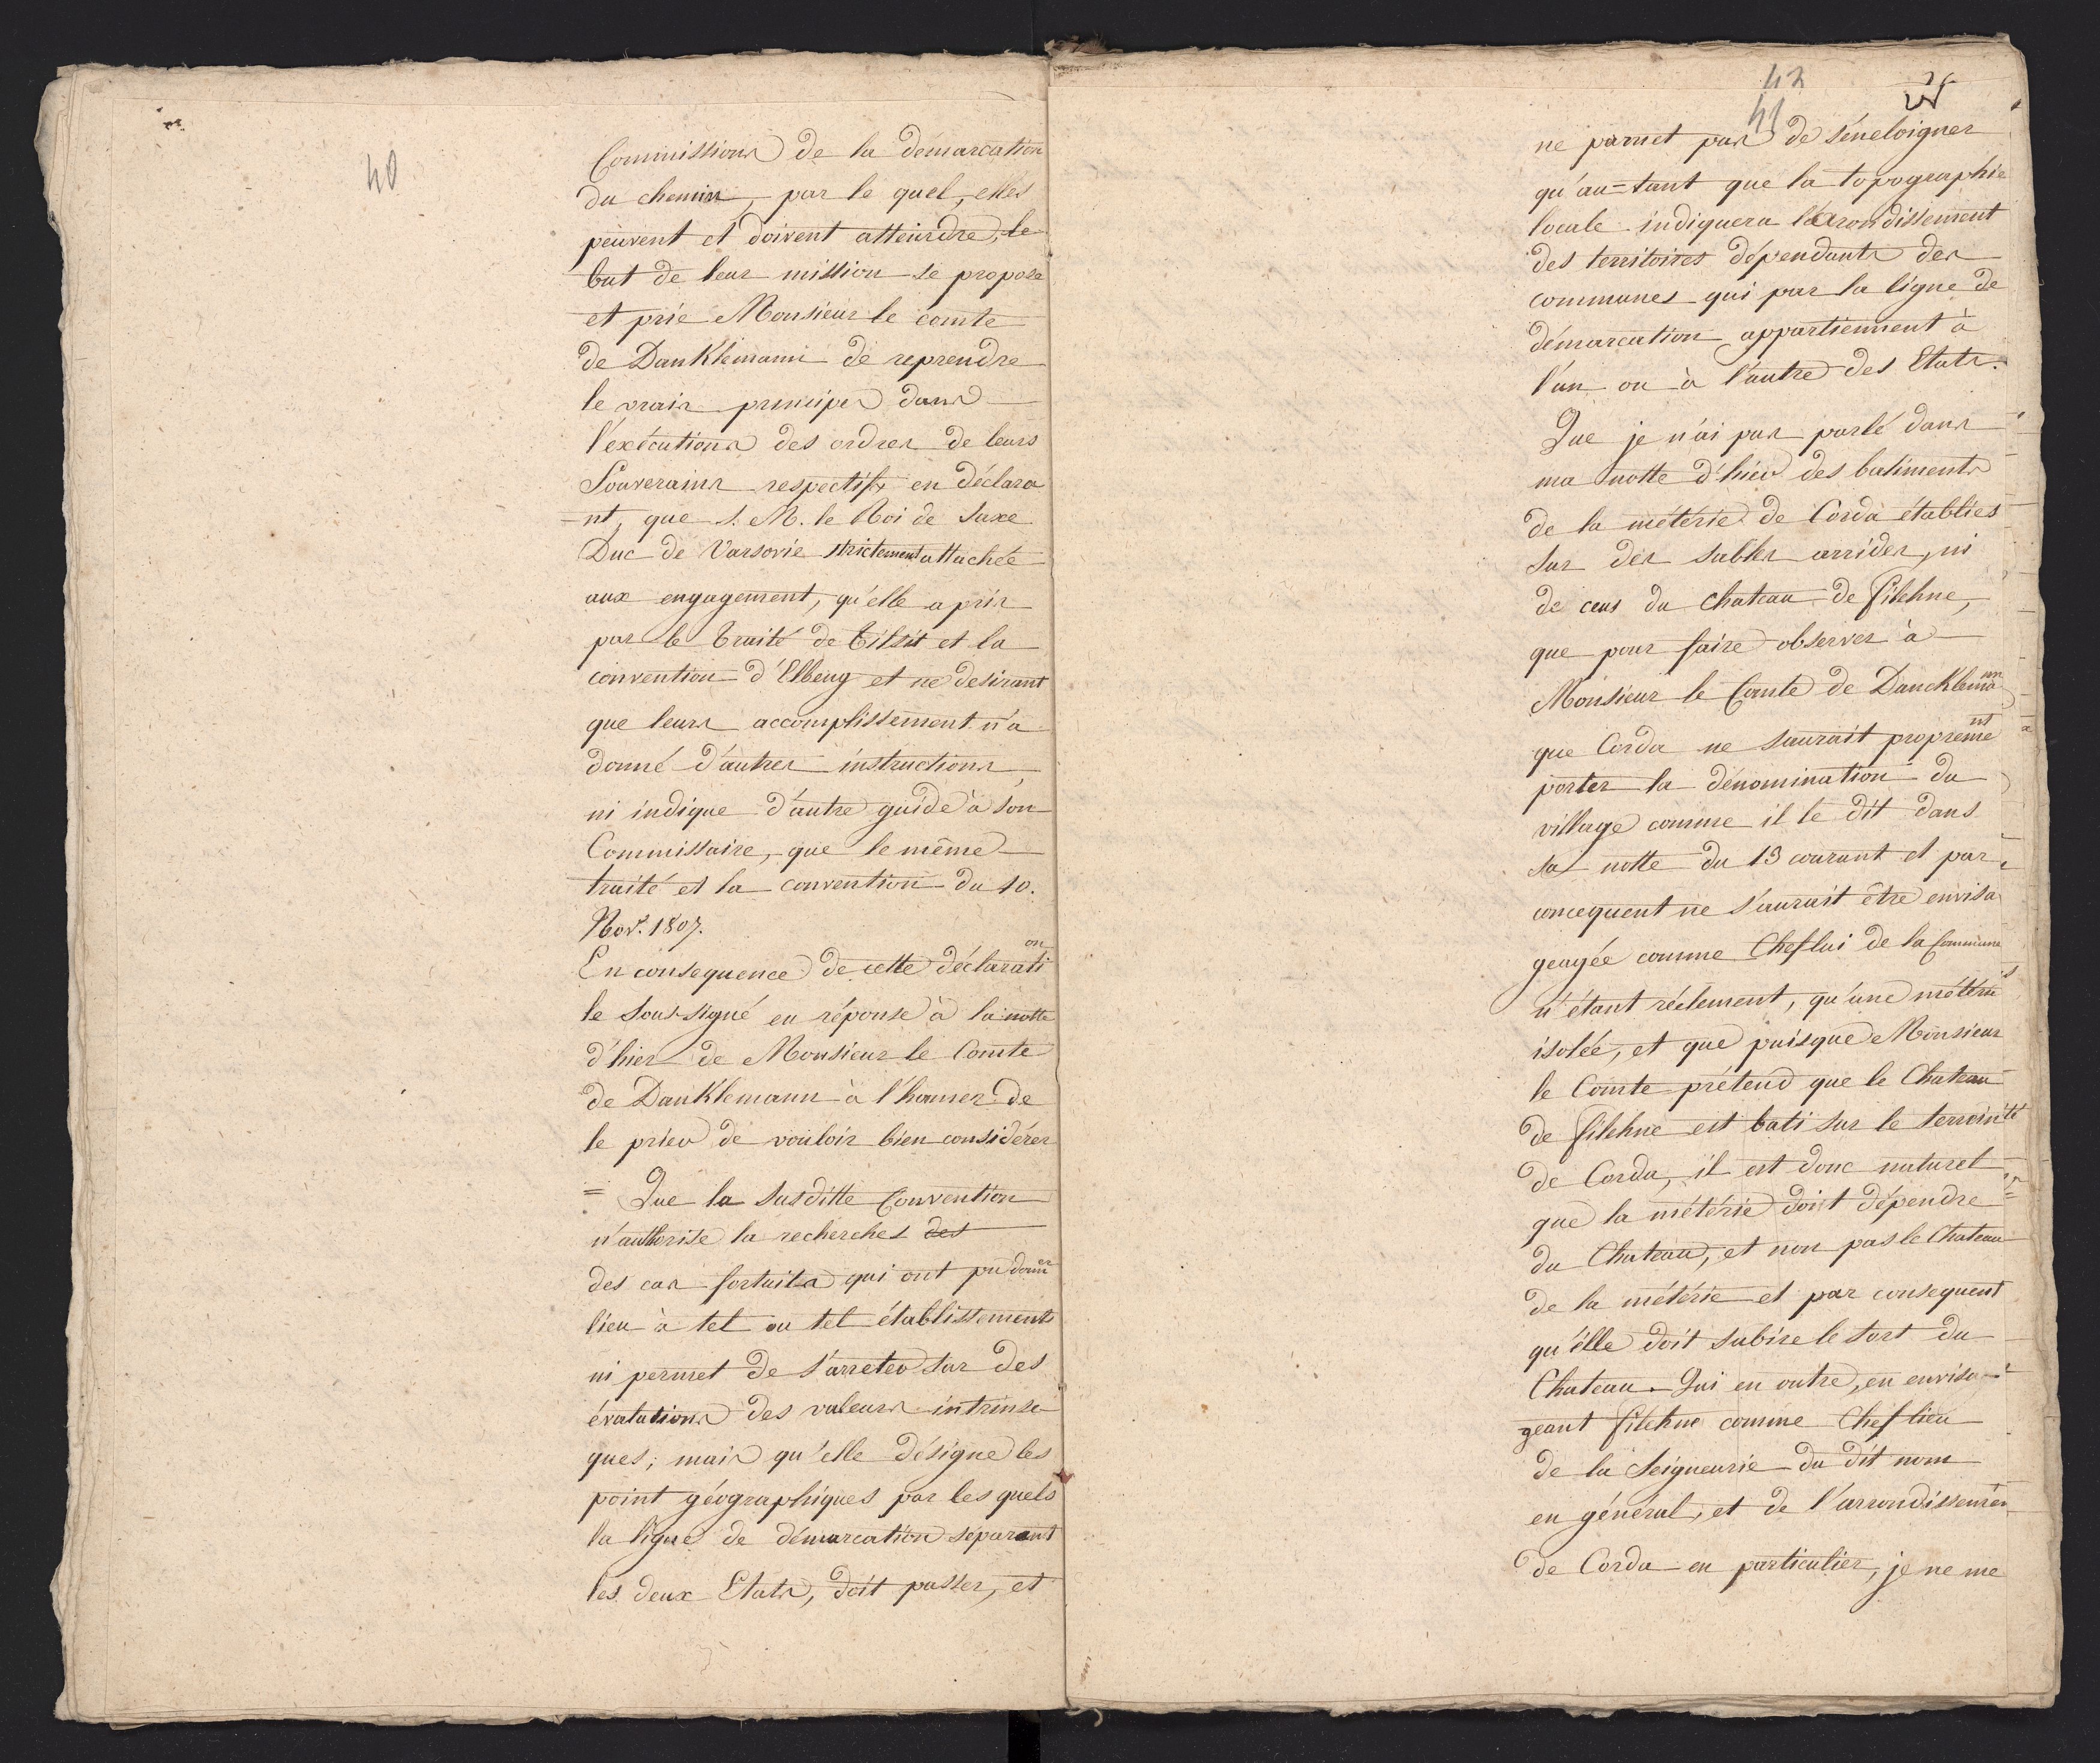 40
Commissions de la démarcation
du chemin, par le quel, elles
peuvent et doivent atteindre, le
but de leur mission se propose
et prie Monsieur le comte
de Danklemann de reprendre
le vrais principes dans
l'exécutions des ordres de leurs
Souverains respectifs en déclara
=nt, que S. M. le Roi de Saxe
Duc de Varsovie strictement attachée
aux engagement, qu'elle a pris
par le Traité de Tilsit et la
convention d'Elbeng et ne desirant
que leurs accomplissement n'a
donné d'autres instructions,
ni indique d'autre guide à son
Commissaire, que le même
traité et la convention du 10.
Nov. 1807.
En consequence de cette déclaration
le Sous-signé en réponse à la notte
d'hier de Monsieur le Comte
de Danklemann à l'honner de
le prier de vouloir bien considérer
= Que la susditte Convention
n'authorise la recherches des
des cas fortuits qui ont pu donner
lieu à tel ou tel établissements
ni permet de s'arreter sur des
évalations des valeurs intrinse
ques, mais qu'elle désigne les
point géographiques par les quels
la ligne de démarcation séparant
les deux Etats, doit passer, et
42
41
ne parmet pas de s'eneloigner
qu'au=tant que la topographie
locale indiquera l'Arondissement
des territoires dépendants des
communes qui par la ligne de
démarcation appartiennent à
l'un ou à l'autre des Etats.
Que je n'ai pas parlé dans
ma notte d'hier des batiments
de la météria de Corda établies
sur des sables arrides, ni
de ceus du chateau de Filehne,
que pour faire observer à
Monsieur le Comte de Dancklemann
que Corda ne saurait proprement
porter la dénomination du
village comme il le dit dans
sa notte du 13 courant et par
concequent ne s'aurait être envisa
geagée comme Chef lui de la Commune
n'étant réelement, qu'une météri
isolée, et que puisque Monsieur
le Comte prétend que le Chateau
de Filehne est bati sur le terrain
de Corda, il est donc naturel
que la météria doit dépendre
du Chateau, et non pas le Chateau
de la météria et par consequent
qu'elle doit subire le sort du
Chateau. Qui en outre, en envisa=
geant Filehne comme Chef lieu
de la Seigneurie du dit nom
en général, et de l'arrondissemen
de Corda en particulier, je ne me